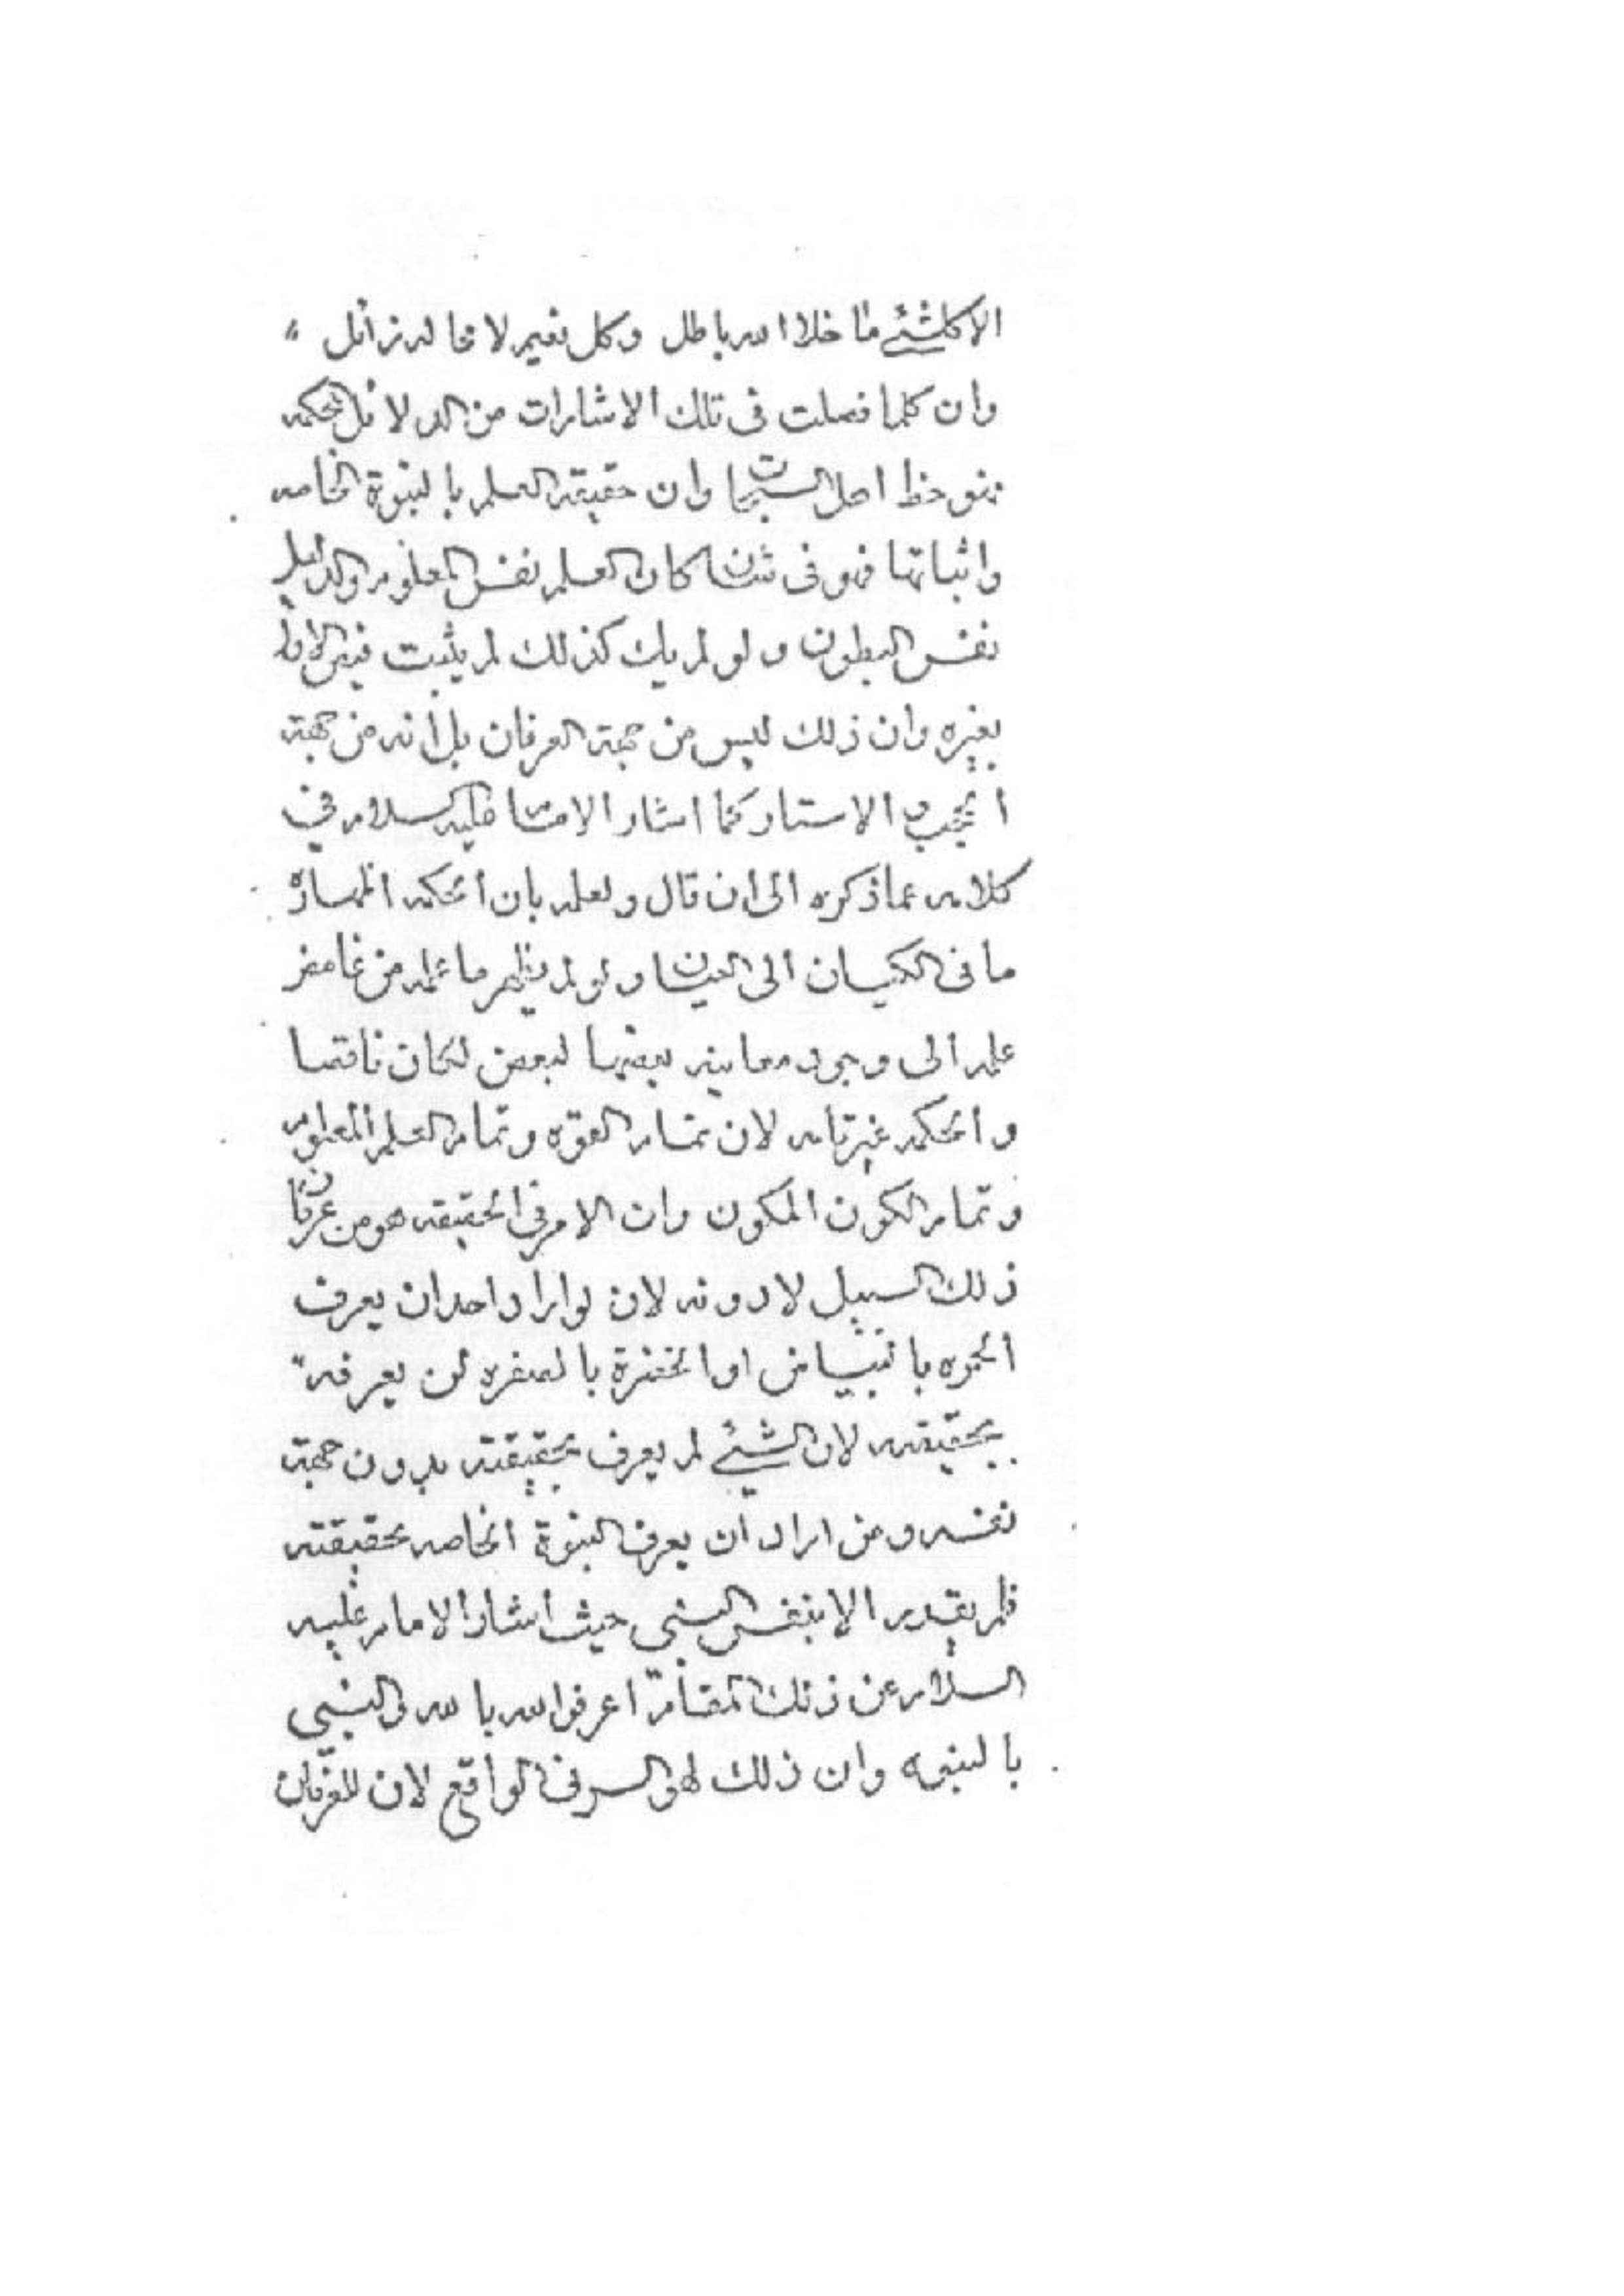 الا كلشئ ما خلا الله باطل وكل نعيم لا محاله زائل
وان كلما فصلت فى تلك الاشارات من الدلائل المحكمه
فهو حظ اهل السبحات وان حقيقة العلم بالنبوة الخاصه
واثباتها فهو فى شان كان العلم نفس المعلوم والدليل
نفس البطون ولو لم يك كذلك لم يثبت فيض الاول
بغيره وان ذلك ليس من جهة العرفان بل انه من جهة
الحجب و الاستار كما اشار الامام عليه السلام فى
كلامه عما ذكره الى ان قال ولعلمه بان الحكمه اظهار
ما فى الكيان الى العيان ولو لم يظهر ما علمه من غامض
علمه الى وجود معاينه بعضها لبعض لكان ناقصا
و الحكمه غير تامه لان تمام القوه وتمام العلم المعلوم
وتمام الكون المكون وان الامر فى الحقيقه هو من عرفان
ذلك السبيل لا دونه لان لو اراد احد ان يعرف
الحمره بالبياض او الخضرة بالصفره لن يعرفه
بحقيقته لان الشئ لم يعرف بحقيقته بدون جهة
نفسه ومن اراد ان يعرف النبوة الخاصه بحقيقته
فلم يقدر الا بنفس النبى حيث اشار الامام عليه
السلام عن ذلك المقام اعرفوا الله بالله والنبى
بالنبوه وان ذلك لهو السر فى الواقع لان للعرفان